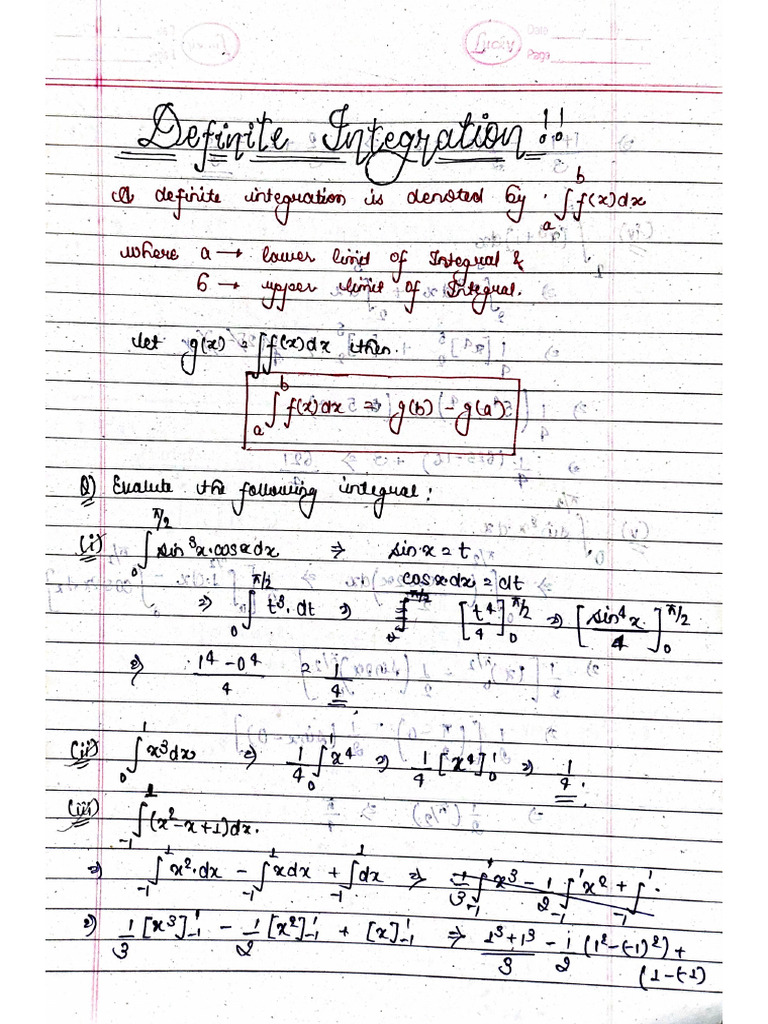 Lucky
Date
Page
Definite Integration!!
A definite integration is denoted by ∫_a^b f(x)dx
where a → lower limit of Integral &
b → upper limit of Integral.
Let g(x) = ∫f(x)dx then.
∫_a^b f(x)dx ⇒ g(b) - g(a)
Q) Evalute the following integral:
(i) ∫_0^{π/2} sin³x·cosxdx ⇒ sinx = t
cosxdx = dt
⇒ ∫_0^{π/2} t³·dt ⇒ [t⁴/4]_0^{π/2} ⇒ [sin⁴x/4]_0^{π/2}
⇒ (1⁴-0⁴)/4 = 1/4
(ii) ∫_0^1 x³dx ⇒ 1/4 ∫_0^1 x⁴ ⇒ 1/4 [x⁴]_0^1 ⇒ 1/4.
(iii) ∫_{-1}^1 (x²-x+1)dx.
⇒ ∫_{-1}^1 x²·dx - ∫_{-1}^1 xdx + ∫_{-1}^1 dx ⇒ 1/3 ∫_{-1}^1 x³ - 1/2 ∫_{-1}^1 x² + ∫_{-1}^1.
⇒ 1/3 [x³]_{-1}^1 - 1/2 [x²]_{-1}^1 + [x]_{-1}^1 ⇒ (1³+1³)/3 - 1/2 (1²-(-1)²) +
(1-(-1)